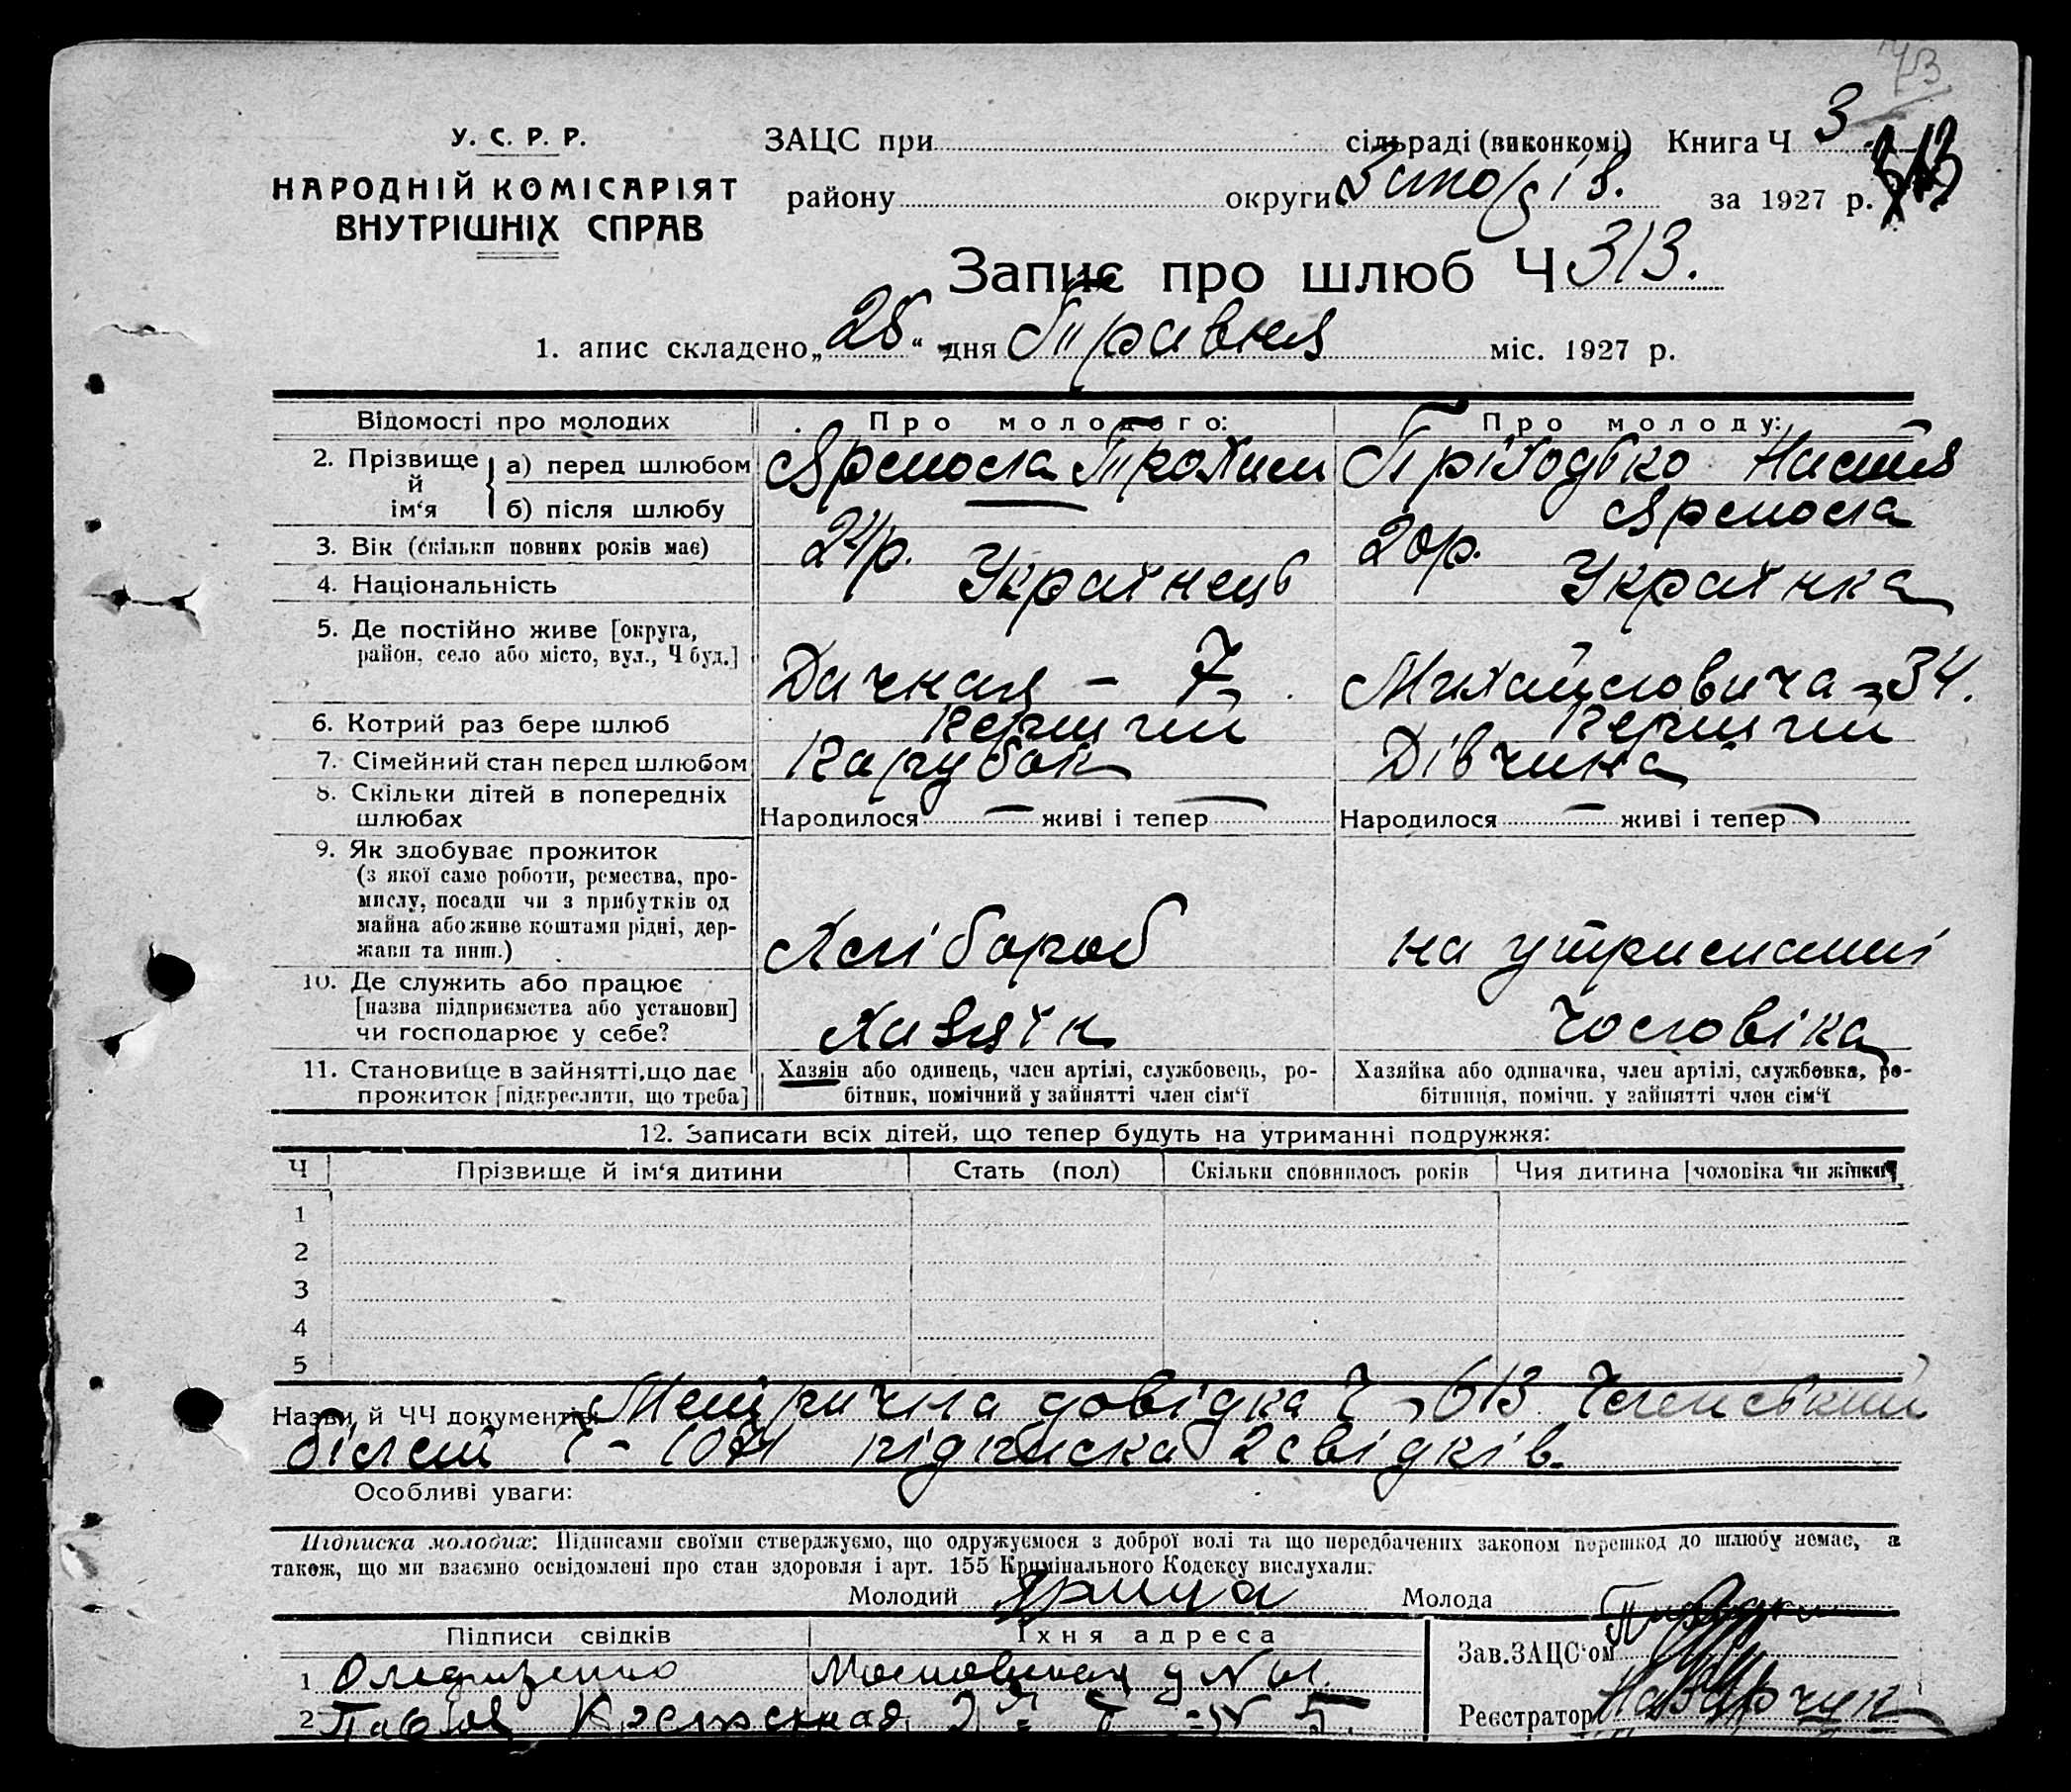 43
У. С. Р. Р.
НАРОДНІЙ КОМІСАРІЯТ
ВНУТРІШНІХ СПРАВ
ЗАЦС при сільраді (виконкомі) Книга Ч 3
району округи за 1927 р. 313
Запис про шлюб Ч 313.
1. апис складено „28“ дня Травня міс. 1927 р.
Відомості про молодих Про молодого: Про молоду:
2. Прізвище й ім‘я
а) перед шлюбом Ярмола Трохим Пріходько Настя
б) після шлюбу Ярмола
3. Вік (скільки повних років має) 24р. 20р.
4. Національність Українець Українка
5. Де постійно живе [округа,
район, село або місто, вул., Ч буд.] Дачная – 7 Михайловича – 34.
6. Котрий раз бере шлюб Перший Перший
7. Сімейний стан перед шлюбом Парубок Дівчина
8. Скільки дітей в попередніх
шлюбах Народилося — живі і тепер — Народилося — живі і тепер —
9. Як здобуває прожиток
(з якої само роботи, ремества, про-
мислу, посади чи з прибутків од
майна або живе коштами рідні, дер-
жави та инш.) Хлібороб на утриманні
10. Де служить або працює
[назва підприємства або установи]
чи господарює у себе? Хазяїн Чоловіка
11. Становище в зайнятті, що дає
прожиток [підкреслити, що треба]
Хазяін або одинець, член артілі, службовець, ро-
бітник, помічний у зайнятті член сім‘ї
Хазяйка або одиначка, член артілі, службовка, ро-
бітниця, помічн. у зайнятті член сім‘ї
12. Записати всіх дітей, що тепер будуть на утриманні подружжя:
Ч Прізвище й ім‘я дитини Стать (пол) Скільки сповнилось років Чия дитина [чоловіка чи жінки]
1
2
3
4
5
Назви й ЧЧ документів: Метрична довідка Ч – 613 Членський
білет Ч – підписка 2 свідків.
Особливі уваги:
Підписка молодих: Підписами своїми стверджуємо, що одружуємося з доброї волі та що передбачених законом перешкод до шлюбу немає, а
також, що ми взаємно освідомлені про стан здоровля і арт. 155 Кримінального Кодексу вислухали.
Молодий Молода
Підписи свідків Їхня адреса
1
2
Зав.ЗАЦС‘ом
Реєстратор Назарчук